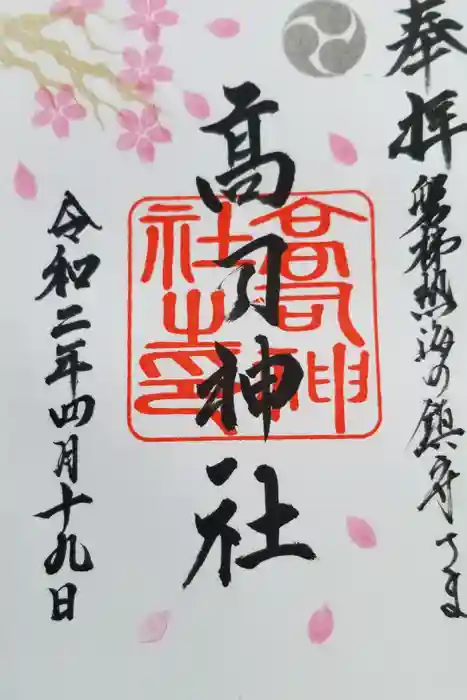 奉拝
磐梯熱海の鎮守さま
髙司神社
高司神
社之印
令和二年四月十九日